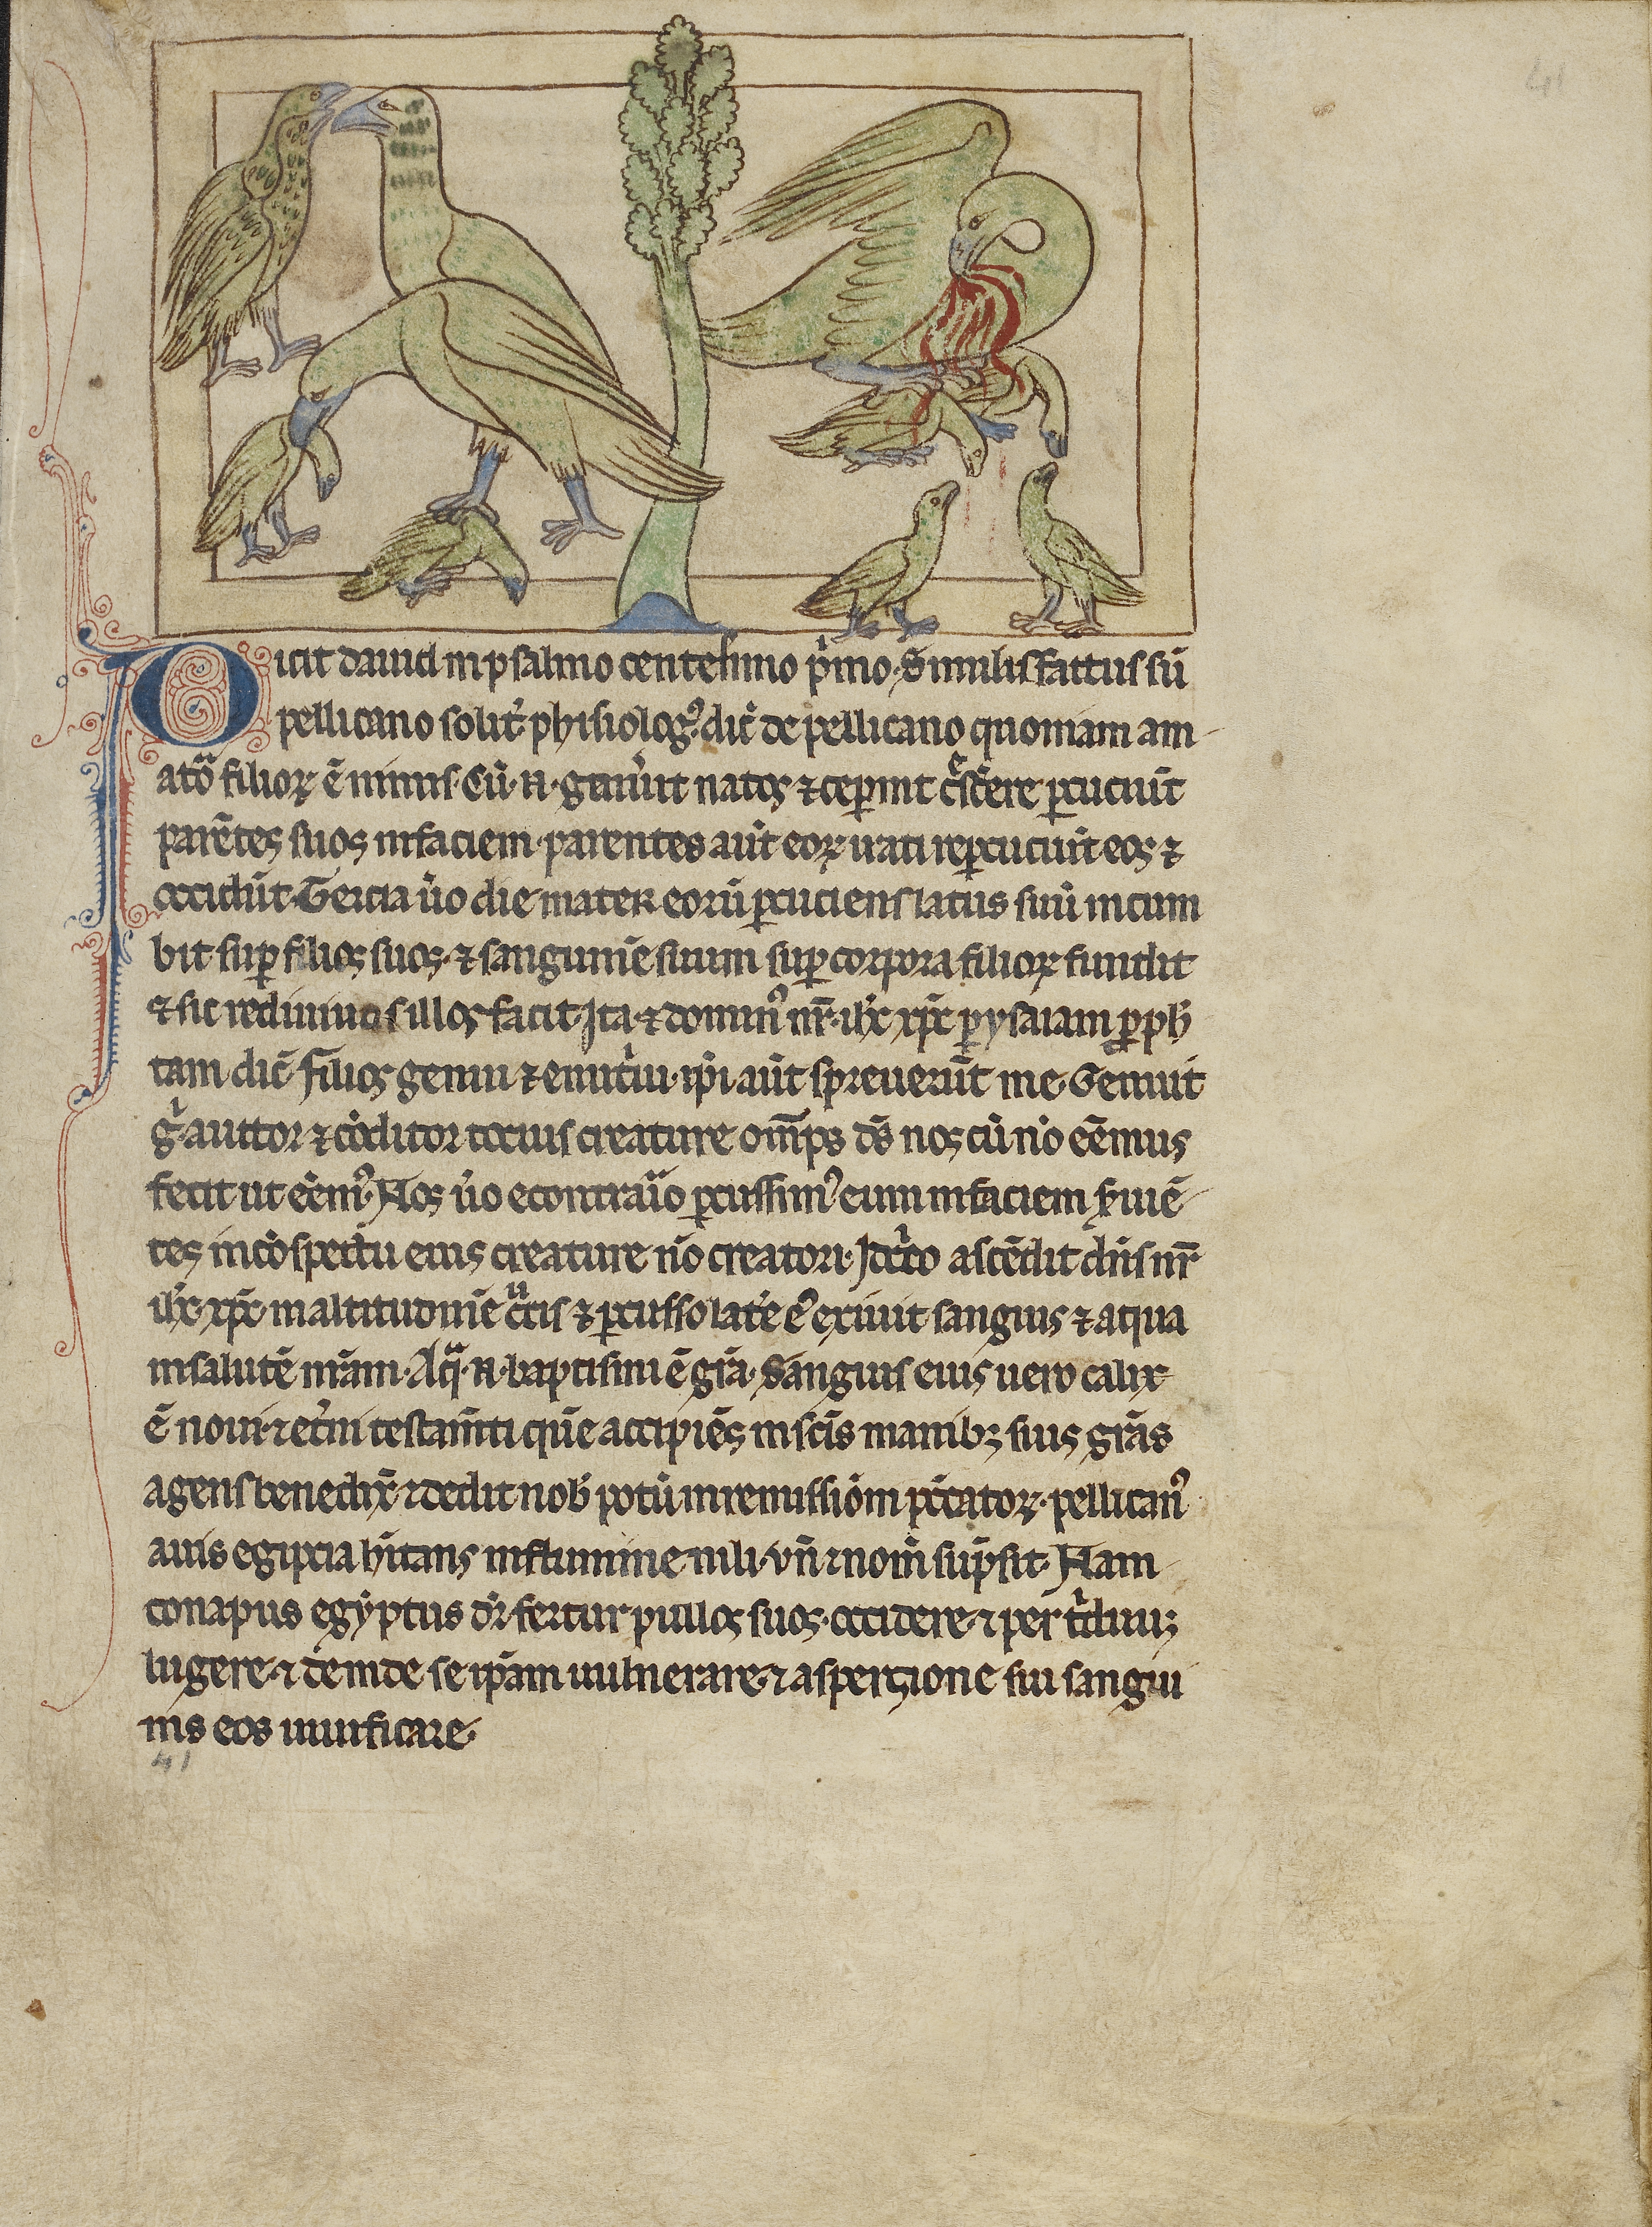 41
Dicit dauid in psalmo centesimo p̓mo. Similis factus sū
pellicano solit᷒. phisiolog᷒ dic̄ de pellicano quoniam am
atoͣ filioꝝ ē nimis. Cū .n. genuͥit natos ⁊ ceꝑint c͛scere ꝑcuciūt
parētes suos in faciem. parentes aūt eoꝝ irati reꝑcuciūt eos ⁊
occidūt. Tercia ūo die mater eorū ꝑcuciens latus suū incum
bit suꝑ filios suos. ⁊ sanguinē suum suꝑ corpora filioꝝ fundit
⁊ sic rediuiuos illos facit. Ita ⁊ domin᷒ nr̄. ih̄c xp̄c ꝑ ysaiam ꝓph
tam dic̄. filios genui ⁊ enut̓ui. ip̄i aūt spreuerūt me. Genuit
g̓. auctor ⁊ cōditor tocius creature om̄ps ds̄ nos cū nō eēmus
fecit ut eēm᷒. Nos ūo econtraͥo ꝑcussim᷒ eum in faciem s̓uiē
tes in cōspectu eius creature nō creatori. Icͥco ascēdit dn̄s nr̄
ih̄c xp̄c in altitudinē cͣcis ⁊ ꝑcusso latē ē exiuit sanguis ⁊ aqua
in salutē nr̄am. Aqͣ .n. baptismi ē gr̄a. Sanguis eius uero calix
ē noui. ⁊ et̓ni testam̄ti quē accipiēs in sc̄is manibꝫ suis gr̄as
agens benedix̄ ⁊ dedit nob̄ potū in remissiōm pc̄catoꝝ. pellican᷒
auis egipcia h̄itans in flumine nili. vn̄ ⁊ nom̄ sūpsit. Nam
conapus egyptus dr̄. fertur pullos suos. occidere. ⁊ per tͥduuꝫ
lugere. ⁊ deinde se ip̄am uulnerare. ⁊ aspercione sui sangui
nis eos uiuificare.
41